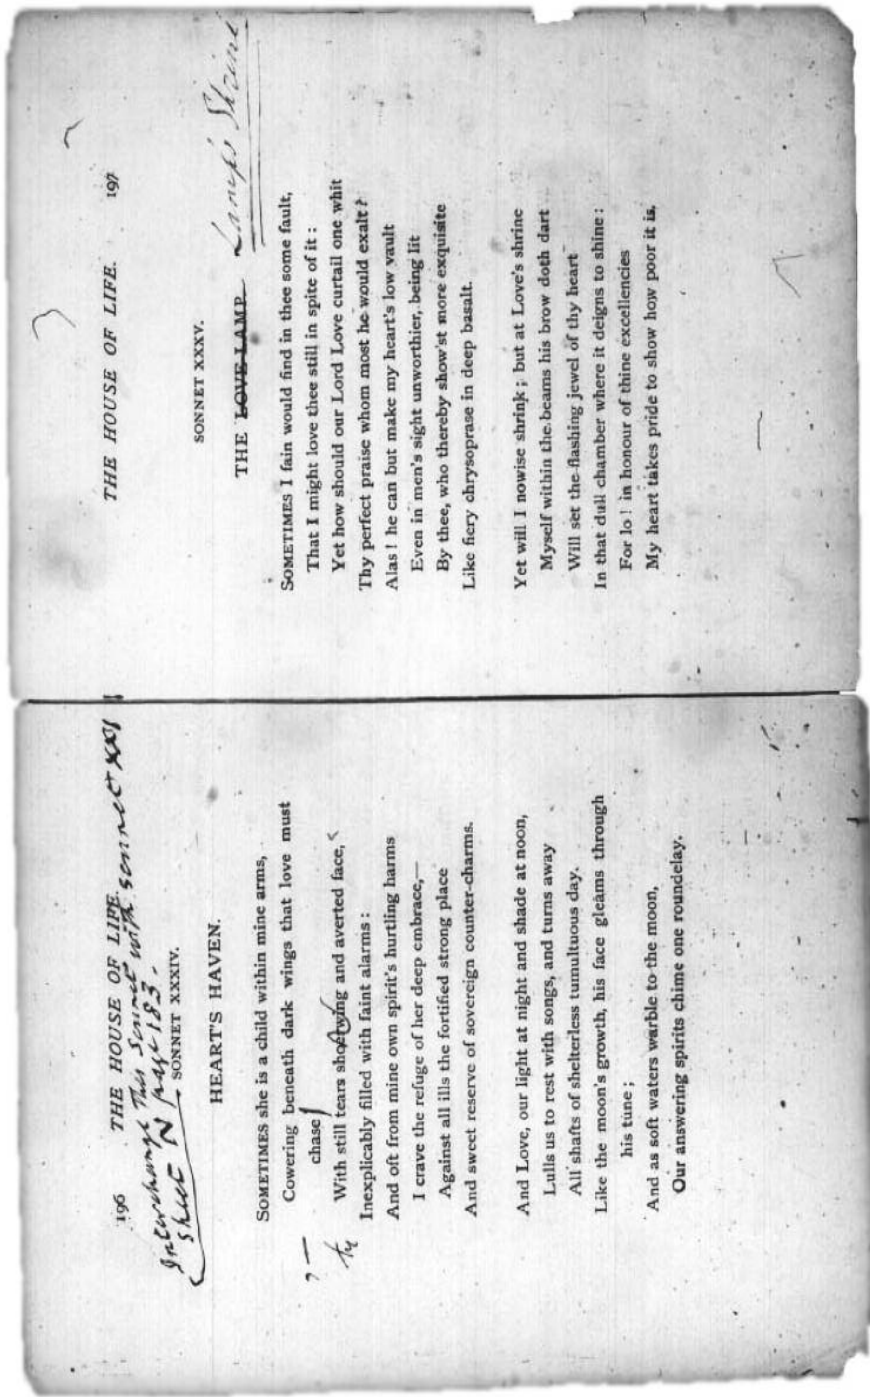 196 THE HOUSE OF LIFE.
Interchange this sonnet with sonnet XXI
Sheet N page 183.
SONNET XXXIV.
HEART'S HAVEN.
SOMETIMES she is a child within mine arms,
Cowering beneath dark wings that love must
chase
With still tears showering and averted face,
Inexplicably filled with faint alarms :
And oft from mine own spirit's hurtling harms
I crave the refuge of her deep embrace,—
Against all ills the fortified strong place
And sweet reserve of sovereign counter-charms.
And Love, our light at night and shade at noon,
Lulls us to rest with songs, and turns away
All shafts of shelterless tumultuous day.
Like the moon's growth, his face gleams through
his tune ;
And as soft waters warble to the moon,
Our answering spirits chime one roundelay.
THE HOUSE OF LIFE. 197
SONNET XXXV.
THE LOVE-LAMP. Lamp's Shrine
SOMETIMES I fain would find in thee some fault,
That I might love thee still in spite of it :
Yet how should our Lord Love curtail one whit
Thy perfect praise whom most he would exalt ?
Alas ! he can but make my heart's low vault
Even in men's sight unworthier, being lit
By thee, who thereby show'st more exquisite
Like fiery chrysoprase in deep basalt.
Yet will I nowise shrink ; but at Love's shrine
Myself within the beams his brow doth dart
Will set the flashing jewel of thy heart
In that dull chamber where it deigns to shine :
For lo ! in honour of thine excellencies
My heart takes pride to show how poor it is.